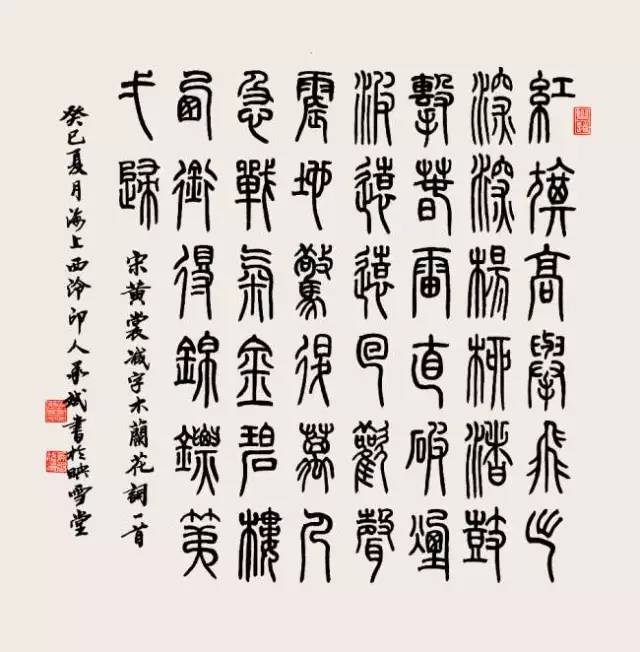 紅旗高舉飛出
深深楊柳渚鼓
擊春雷直破煙
波遠遠回歡聲
震地驚退萬人
急戰氣金碧樓
西銜得錦第
弌歸
宋黃裳減字木蘭花詞一首
癸巳夏月海上西泠印人斌書於映雪堂